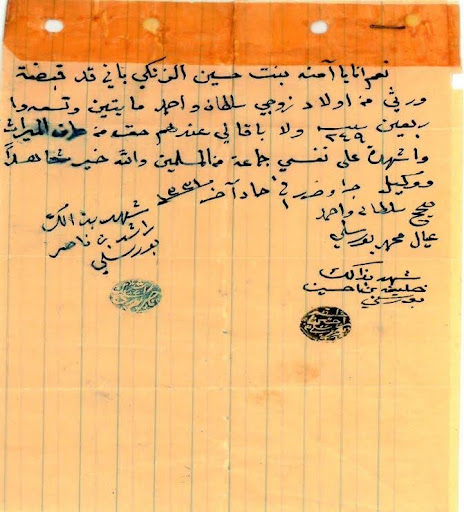 نعم انا يا آمنه بنت حسين الزنكي باني قد قبضة
ورثي من اولاد زوجي سلطان و احمد مايتين وتسعه و
ربعين ٢٤٩ ولا باقا لي عندهم حق من طرف الميراث
واشهدة على نفسي جماعة من المسلمين والله خير شاهداً
ووكيل جرا وضرر في
صح سلطان واحمد
عيال محمد بورسلي
شهد بذالك
راشد بن ناصر
بورسلي
شهد بذالك
خليفه بن حسين
بورسلي